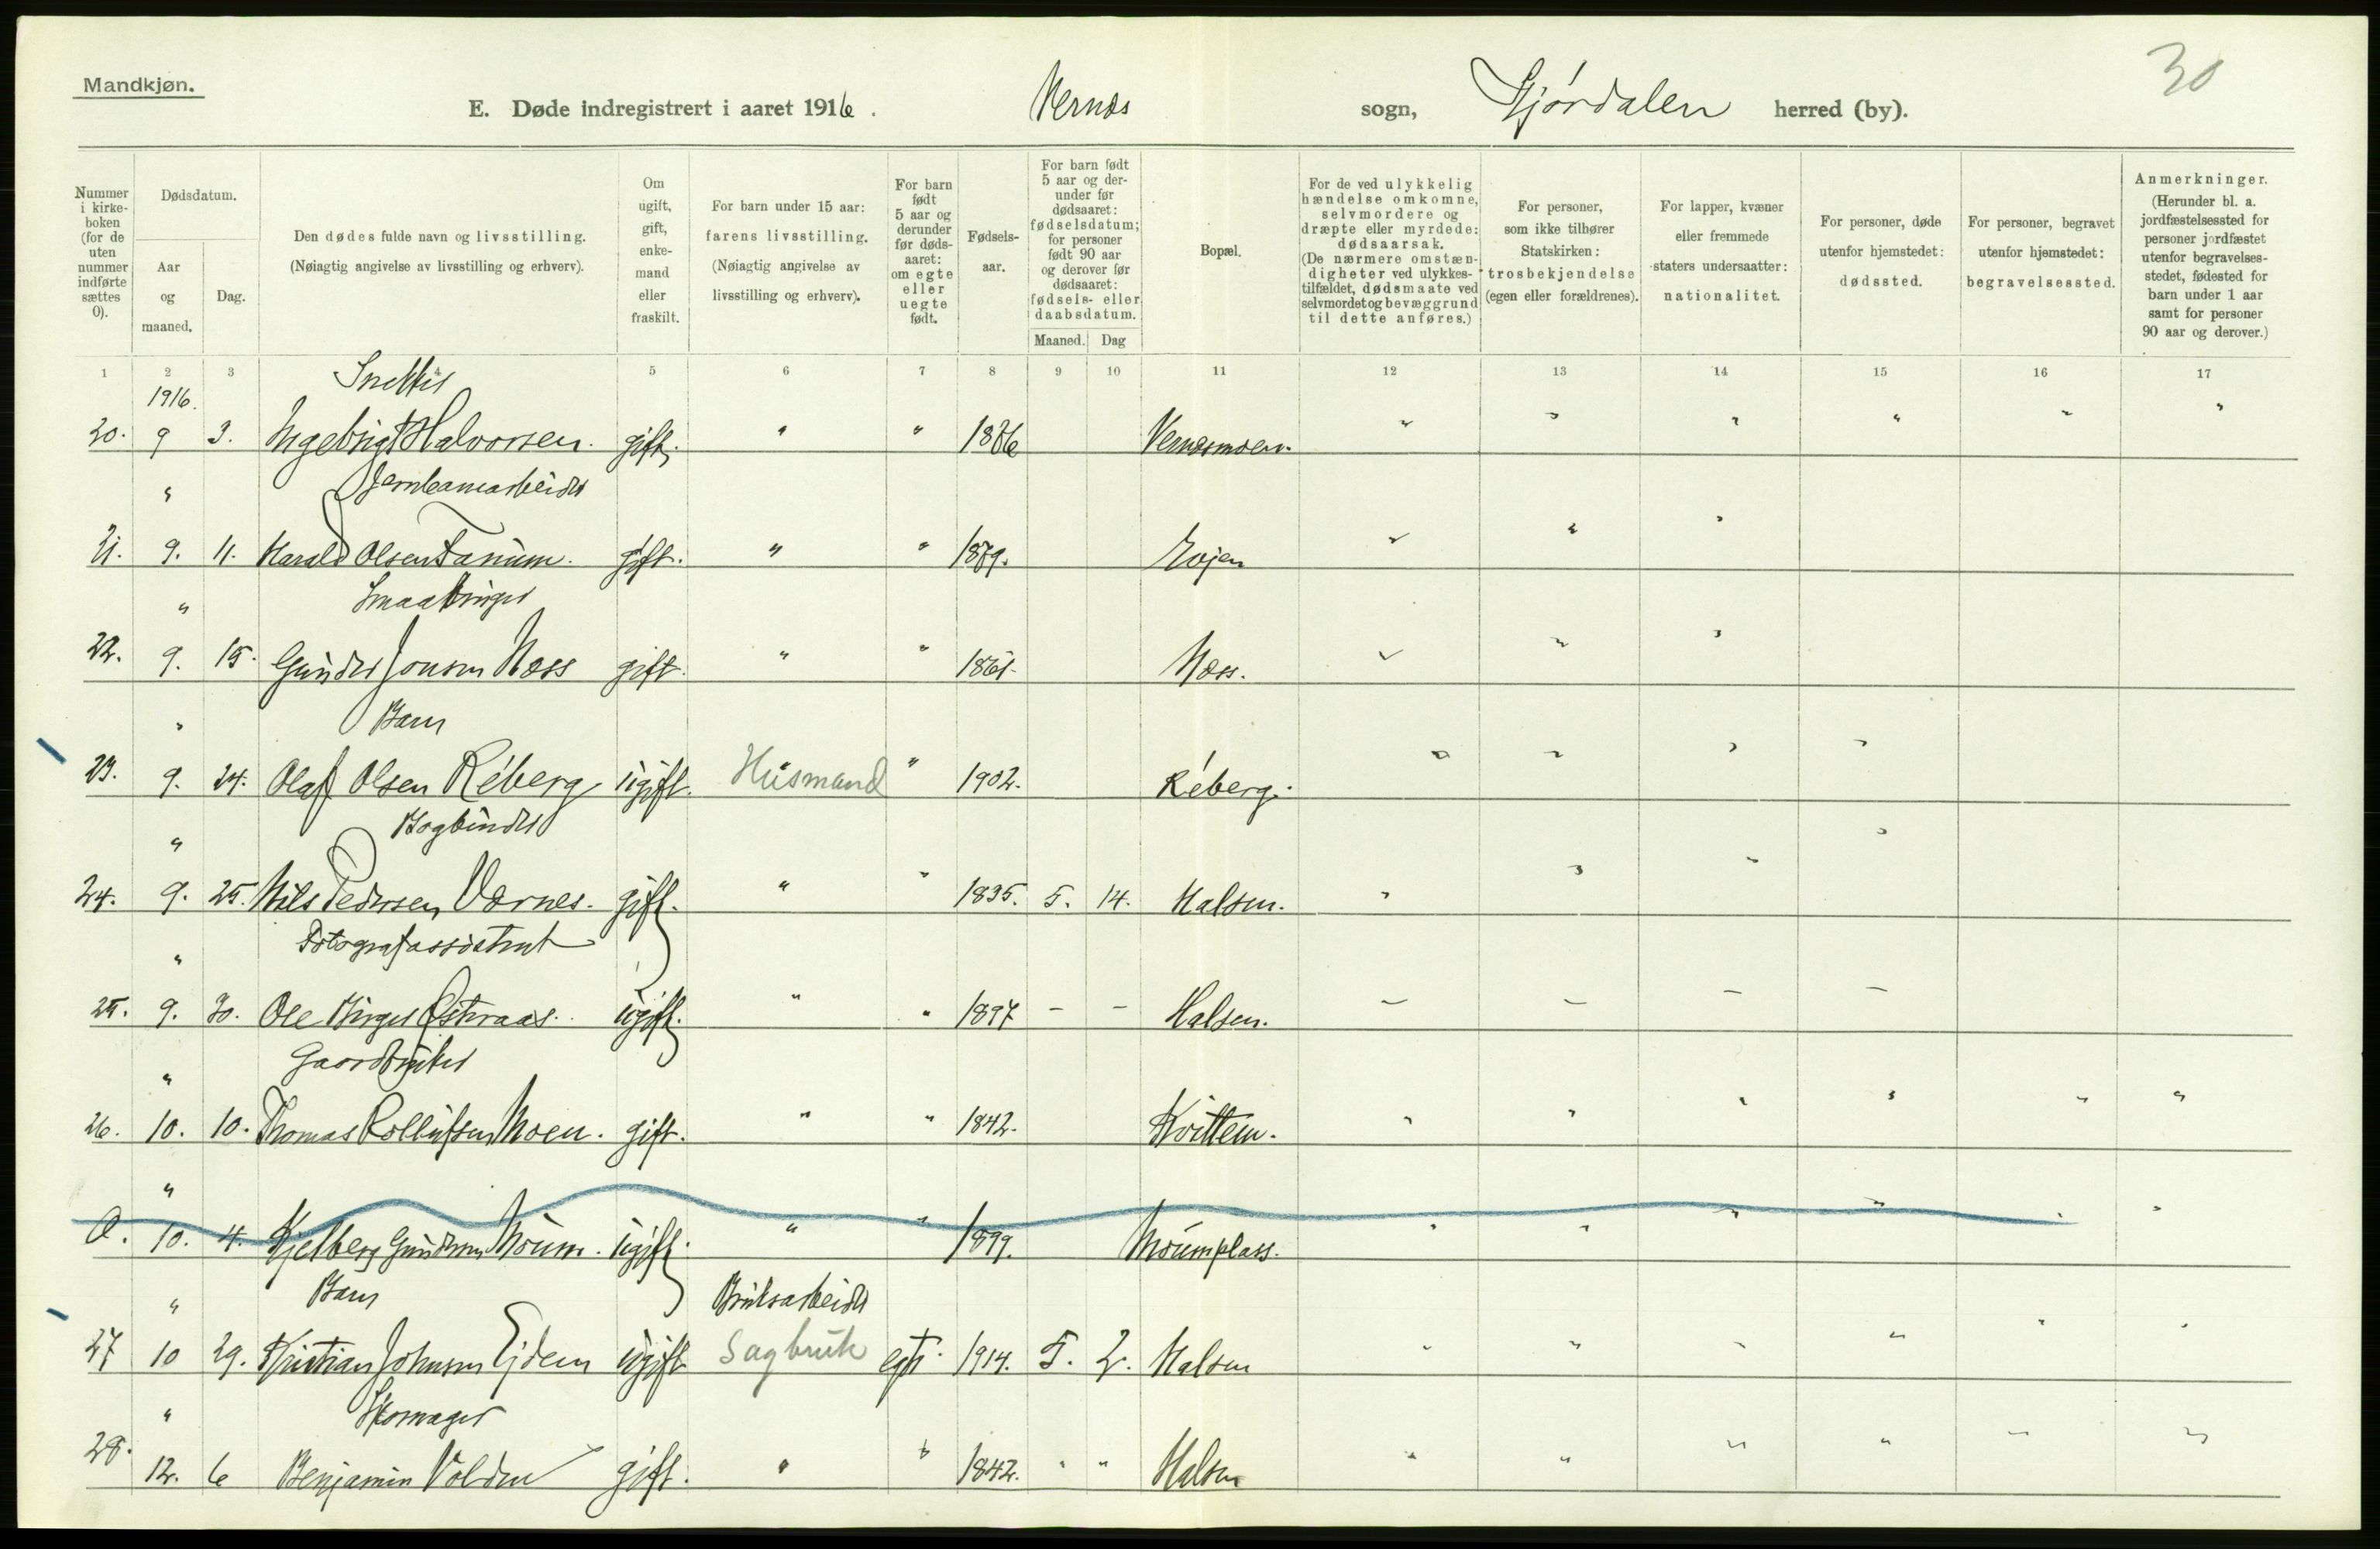 Mandkjøn.
30
E. Døde indregistrert i aaret 1916. Vernes sogn, Stjørdalen herred (by).
Nummer i kirkeboken (for de uten nummer indførte sættes 0).
Dødsdatum.
Aar og maaned.
Dag.
Den dødes fulde navn og livsstilling. (Nøiagtig angivelse av livsstilling og erhverv).
Om ugift, gift, enkemand eller fraskilt.
For barn under 15 aar: farens livsstilling. (Nøiagtig angivelse av livsstilling og erhverv).
For barn født 5 aar og derunder før dødsaaret: om egte eller uegte født.
Fødselsaar.
For barn født 5 aar og derunder før dødsaaret: fødselsdatum; for personer født 90 aar og derover før dødsaaret: fødsels- eller daabsdatum.
Maaned. Dag
Bopæl.
For de ved ulykkelig hændelse omkomne, selvmordere og dræpte eller myrdede: dødsaarsak. (De nærmere omstændigheter ved ulykkestilfældet, dødsmaate ved selvmordet og bevæggrund til dette anføres.)
For personer, som ikke tilhører Statskirken: trosbekjendelse (egen eller forældrenes).
For lapper, kvæner eller fremmede staters undersaatter: nationalitet.
For personer, døde utenfor hjemstedet: dødssted.
For personer, begravet utenfor hjemstedet: begravelsessted.
Anmerkninger. (Herunder bl. a. jordfæstelsessted for personer jordfæstet utenfor begravelsesstedet, fødested for barn under 1 aar samt for personer 90 aar og derover.)
1 2 3 4 5 6 7 8 9 10 11 12 13 14 15 16 17
1916. Snekker
20. 9 3. Ingebrigt Halvorsen. gift. " " 1876 Vernesmoen. " " " " " "
" Jernbanearbeider
21. 9. 11. Harald Olsen Fanum. gift. " " 1879. Evjen " " "
" Smaabruger
22. 9. 15. Gunder Jonsen Næss gift " " 1861. Næss. " " "
" Barn
23. 9. 24. Olaf Olsen Réberg ugift. Husmand " 1902. Réberg. " " " "
" Bogbinder
24. 9. 25. Nils Pedersen Værnes. gift. " " 1835. 5. 14. Halsen. " " " "
" Fotografassistent
25. 9. 30. Ole Birger Østraas. ugift. " " 1897 - - Halsen. - - - -
" Gaardbruker
26. 10. 10. Thomas Rollufsen Moen. gift. " " 1842. Kvittem. " " " " " "
"
0. 10. 4. Kjelberg Gundersen Moum. ugift. " " 1899. Moumplass. " " " " " "
" Barn Bruksarbeider
27 10 29. Kristian Johnsen Ejdem ugift Sagbruk egte. 1914. 5. 2. Halsen " " " " " "
" Skomager
28. 12. 6 Benjamin Volden gift. " " 1842. " " Halsen " " " " " "